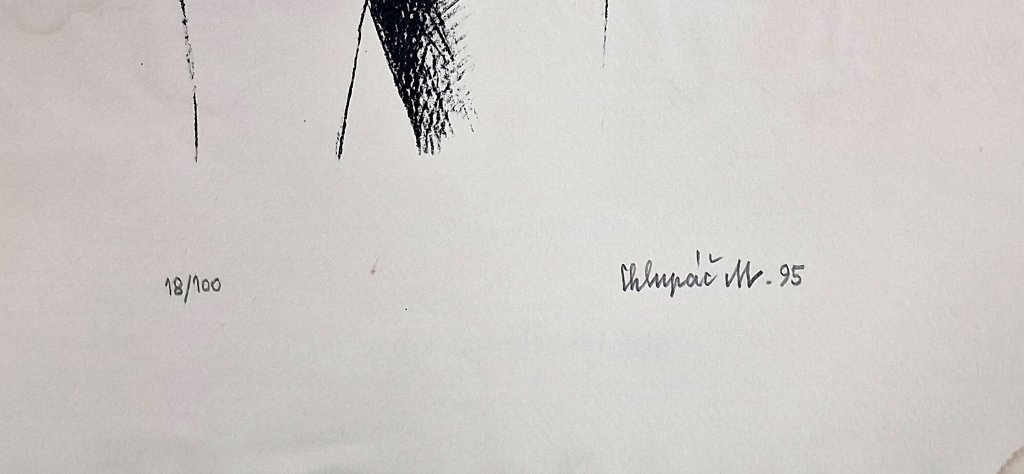 18/100
Chlupáč M. 95